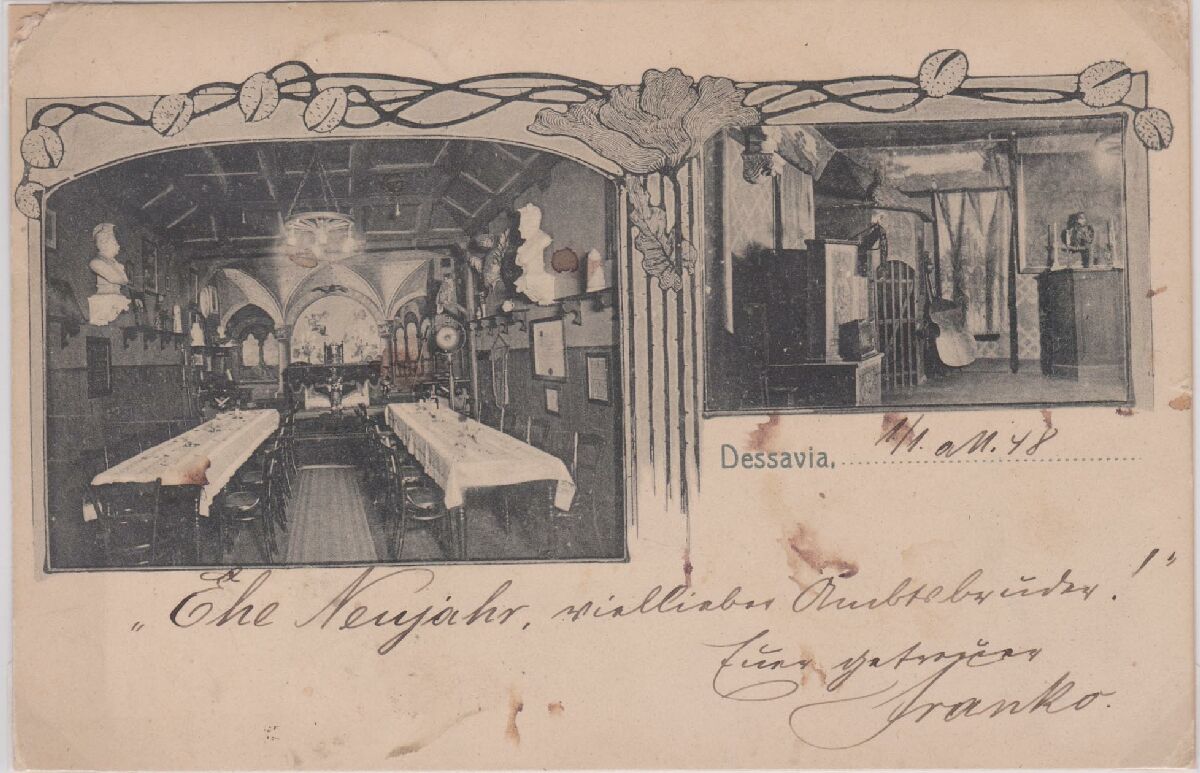 Dessavia, 1/1. a. U. 48
„Ehe Neujahr, viellieber Ambtsbruder!"
Euer getreuer
Franko.